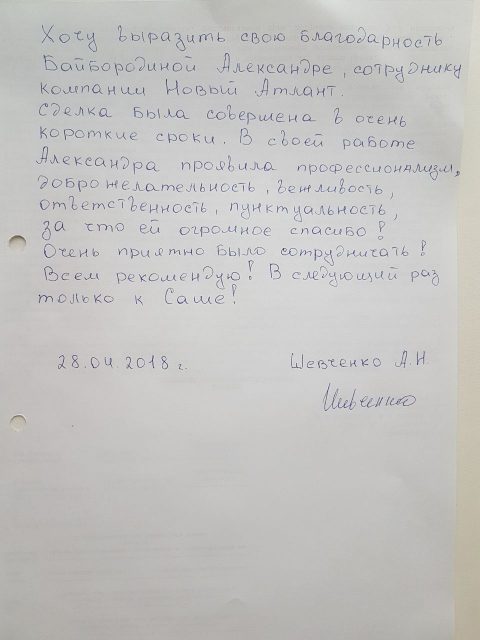 Хочу выразить свою благодарность
Байбородиной Александре, сотруднику
компании Новый Атлант.
Сделка была совершена в очень
короткие сроки. В своей работе
Александра проявила профессионализм,
доброжелательность, вежливость,
ответственность, пунктуальность,
за что ей огромное спасибо!
Очень приятно было сотрудничать!
Всем рекомендую! В следующий раз
только к Саше!
28.04.2018 г. Шевченко А.Н.
Шевченко